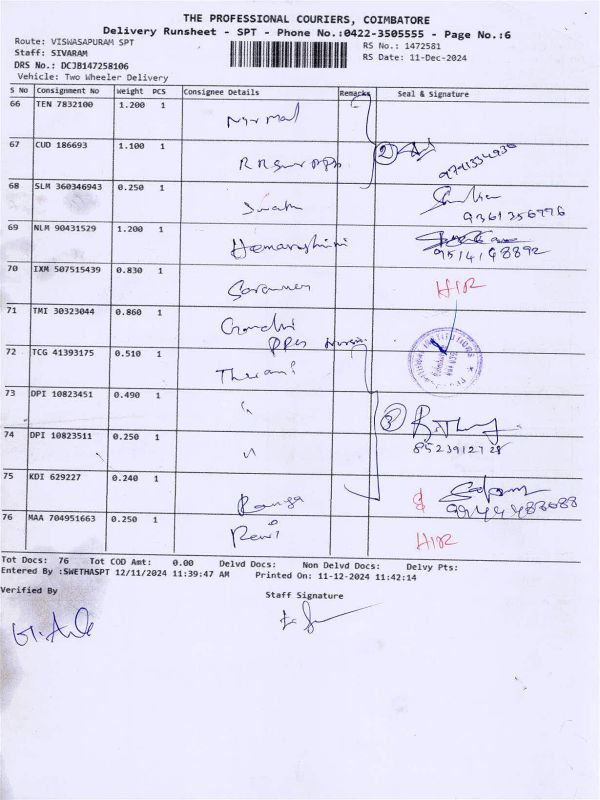 THE PROFESSIONAL COURIERS, COIMBATORE
Delivery Runsheet - SPT - Phone No.:0422-3505555 - Page No.:6
Route: VISWASAPURAM SPT
RS No.: 1472581
Staff: SIVARAM
RS Date: 11-Dec-2024
DRS No.: DCJB147258106
Vehicle: Two Wheeler Delivery
S No Consignment No Weight PCS Consignee Details Remarks Seal & Signature
66 TEN 7832100 1.200 1 Nirmal
67 CUD 186693 1.100 1 2
68 SLM 360346943 0.250 1 9361356776
69 NLM 90431529 1.200 1 Hemavarshini 9514148892
70 IXM 507515439 0.830 1 Saravanan HIR
71 TMI 30323044 0.860 1 Chandni
72 TCG 41393175 0.510 1 Therani
73 DPI 10823451 0.490 1 " 3
8523912728
74 DPI 10823511 0.250 1 "
75 KDI 629227 0.240 1 Ranga
76 MAA 704951663 0.250 1 Revi HIR
Tot Docs: 76 Tot COD Amt: 0.00 Delvd Docs: Non Delvd Docs: Delvy Pts:
Entered By :SWETHASPT 12/11/2024 11:39:47 AM Printed On: 11-12-2024 11:42:14
Verified By
Staff Signature